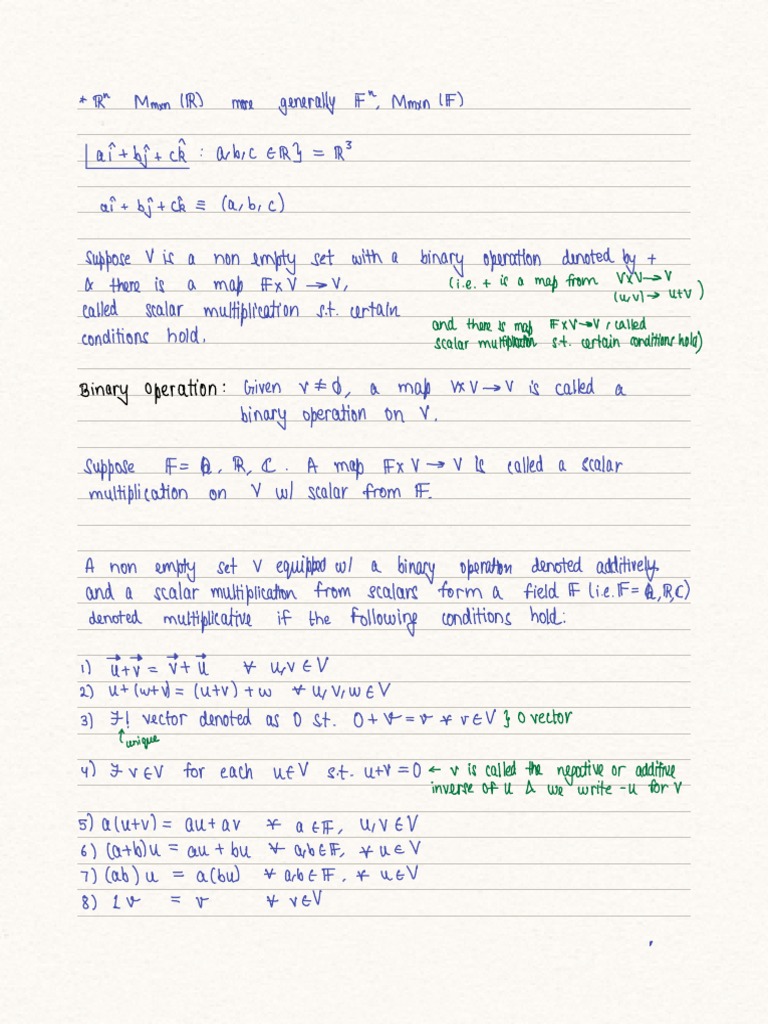 * ℝⁿ Mmxn (ℝ) more generally 𝔽ⁿ, Mmxn (𝔽)
{aî + bĵ + ck̂ : a,b,c ∈ ℝ} = ℝ³
aî + bĵ + ck̂ ≡ (a, b, c)
Suppose V is a non empty set with a binary operation denoted by +
& there is a map 𝔽 x V → V, (i.e. + is a map from V x V → V
(u,v) → u+v )
called scalar multiplication s.t. certain
and there is map 𝔽 x V → V, called
conditions hold. scalar multiplication s.t. certain conditions hold)
Binary Operation: Given V ≠ ∅, a map V x V → V is called a
binary operation on V.
Suppose 𝔽 = ℚ, ℝ, ℂ. A map 𝔽 x V → V is called a scalar
multiplication on V w/ scalar from 𝔽.
A non empty set V equipped w/ a binary operation denoted additively
and a scalar multiplication from scalars form a field 𝔽 (i.e. 𝔽 = ℚ, ℝ, ℂ)
denoted multiplicative if the following conditions hold:
1) u⃗ + v⃗ = v⃗ + u⃗ ∀ u,v ∈ V
2) u + (w+v) = (u+v) + w ∀ u, v, w ∈ V
3) ∃! vector denoted as 0 st. 0 + v = v ∀ v ∈ V } 0 vector
↑ unique
4) ∃ v ∈ V for each u ∈ V s.t. u+v = 0 ← v is called the negative or additive
inverse of u & we write -u for v
5) a(u+v) = au + av ∀ a ∈ 𝔽, u, v ∈ V
6) (a+b)u = au + bu ∀ a,b ∈ 𝔽, ∀ u ∈ V
7) (ab) u = a(bu) ∀ a,b ∈ 𝔽, ∀ u ∈ V
8) 1v = v ∀ v ∈ V